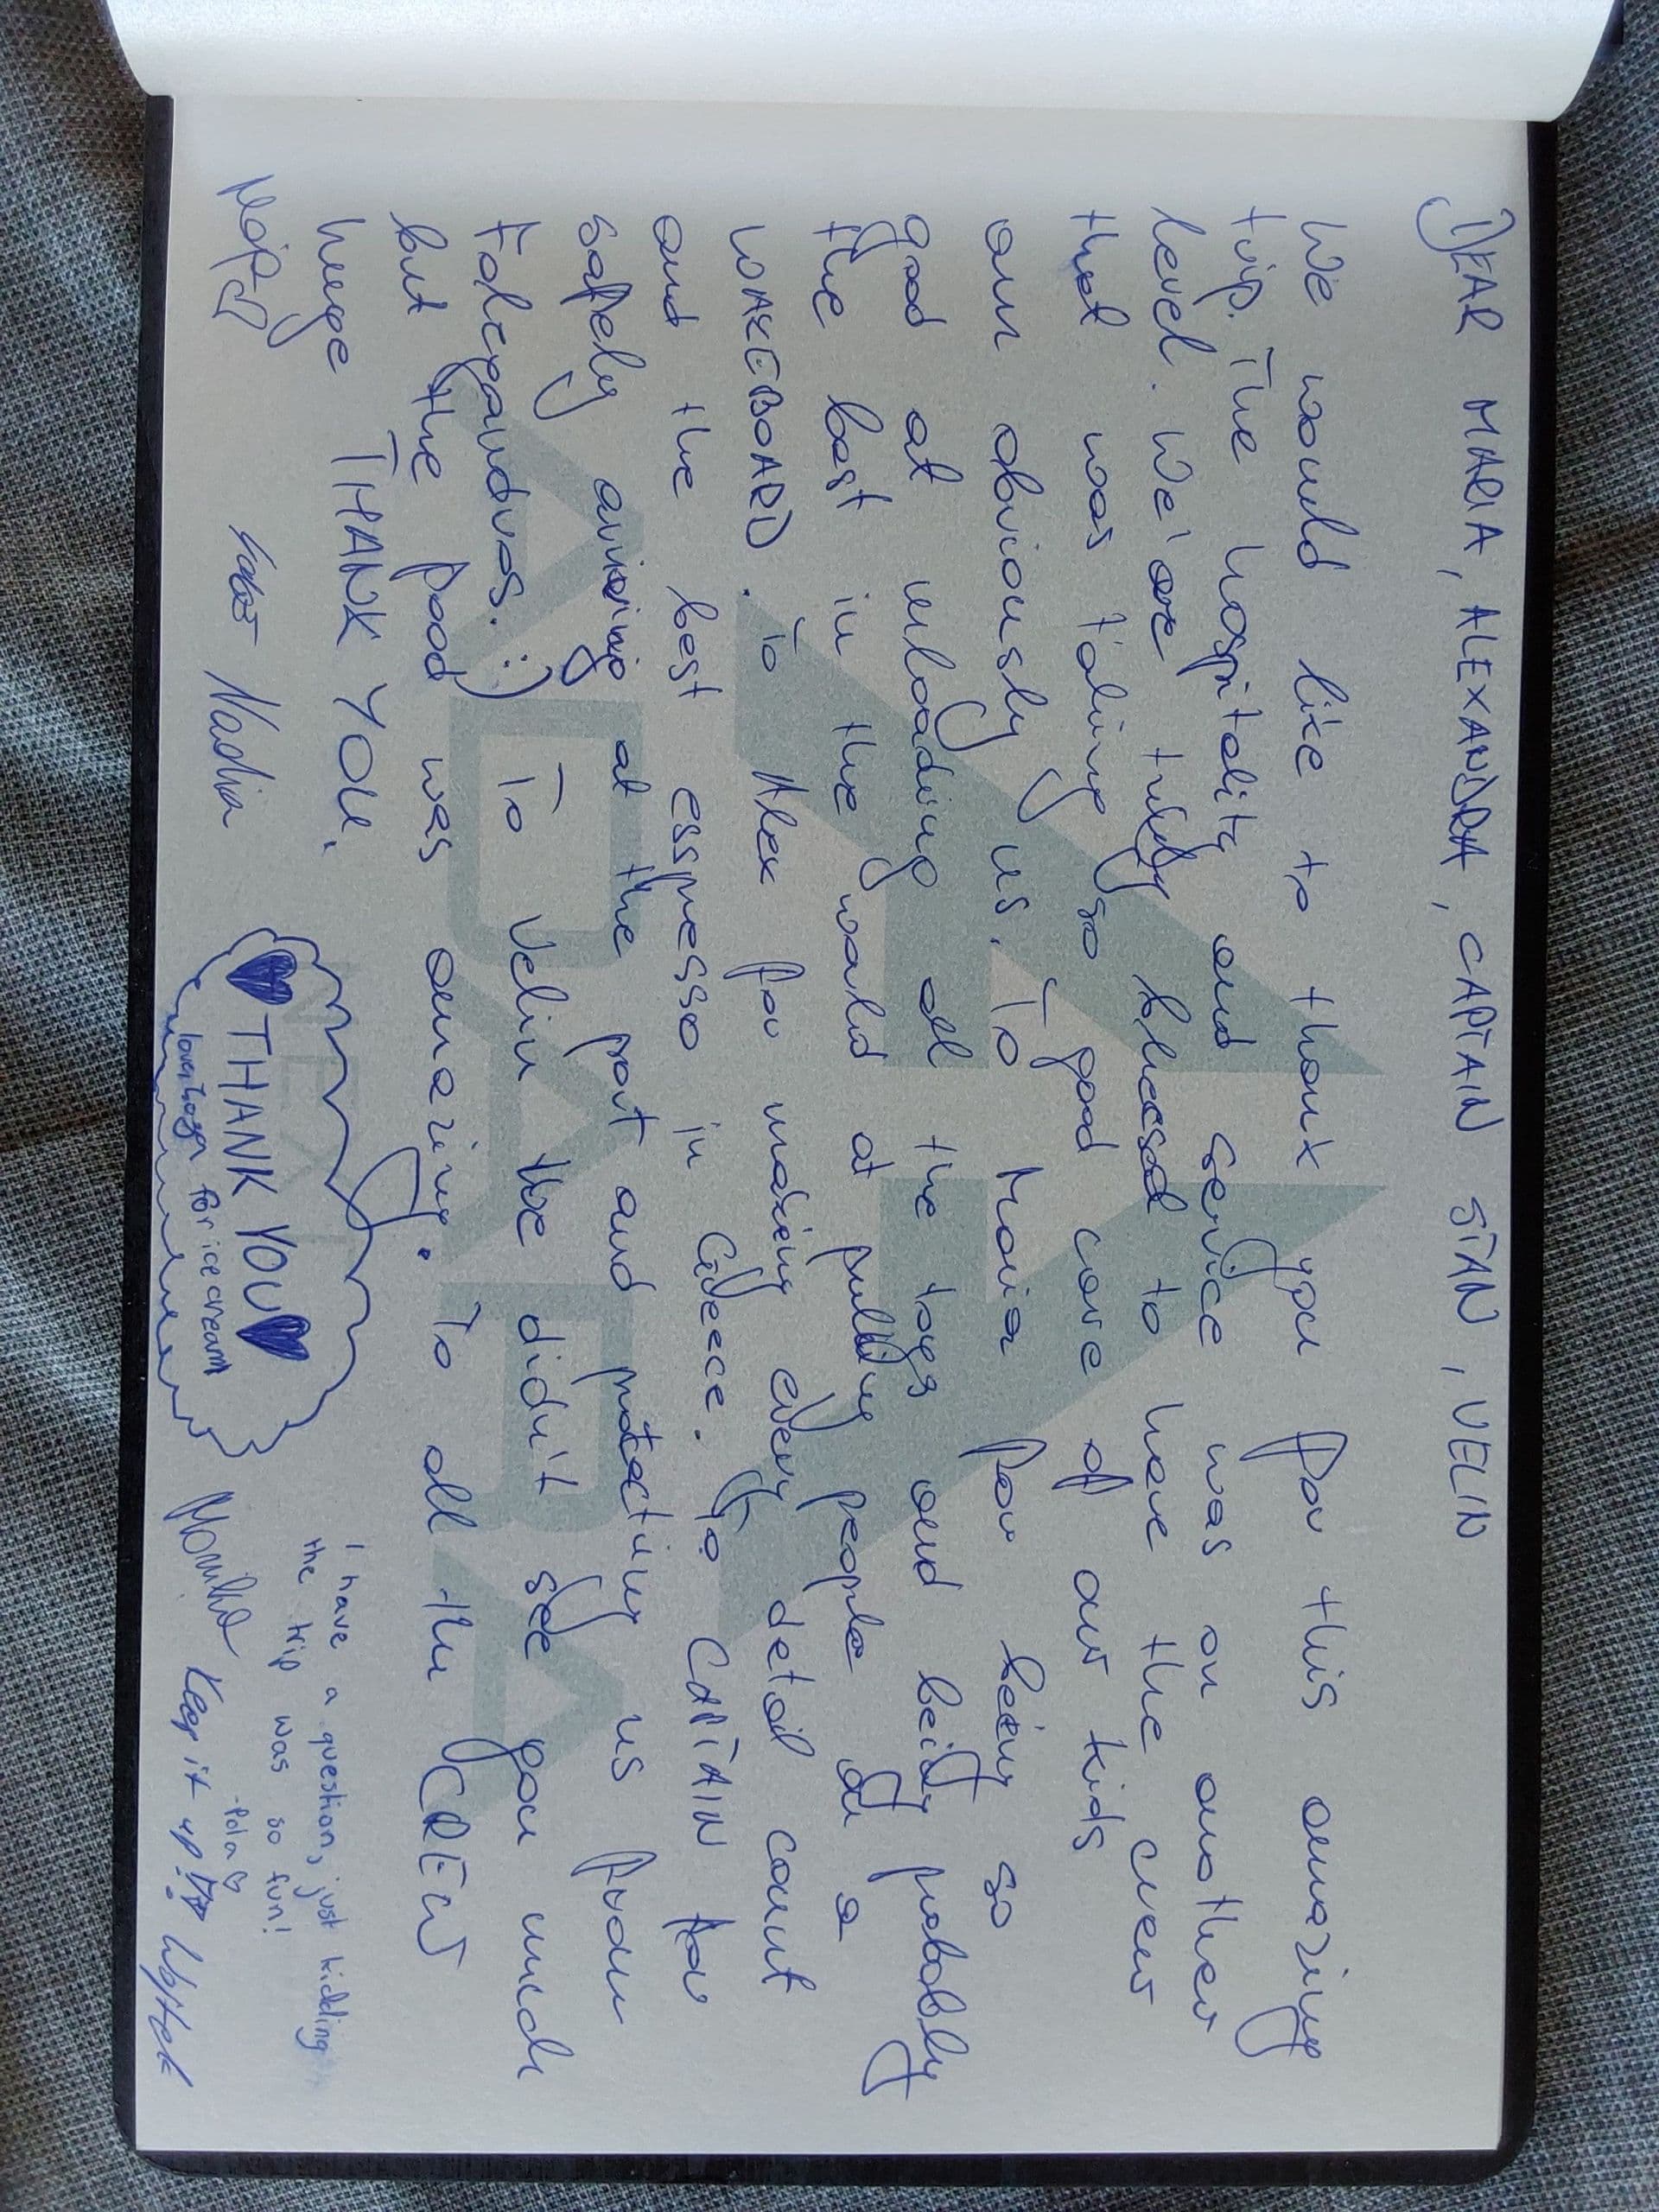 DEAR MARIA, ALEXANDRA, CAPTAIN STAN, VELIN
We would like to thank you for this amazing
trip. The hospitality and service was on another
level. We'are truly blessed to have the crew
that was taking so good care of our kids
our obviously us. To Maria for being so
good at unloading all the toys and being probably
the best in the world at pulling people on a
WAKEBOARD. To Alex for making every detail count
and the best espresso in Greece. To CAPTAIN for
safely arriving at the port and protecting us from
To Velin we didn't see you much
but the food was amazing. To all the CREW
huge THANK YOU.
I have a question, just kidding
the trip was so fun!
-Pola
THANK YOU
for ice cream
Nadia
Monika
Keep it up!!! Wojtek
ADARA
NEXT